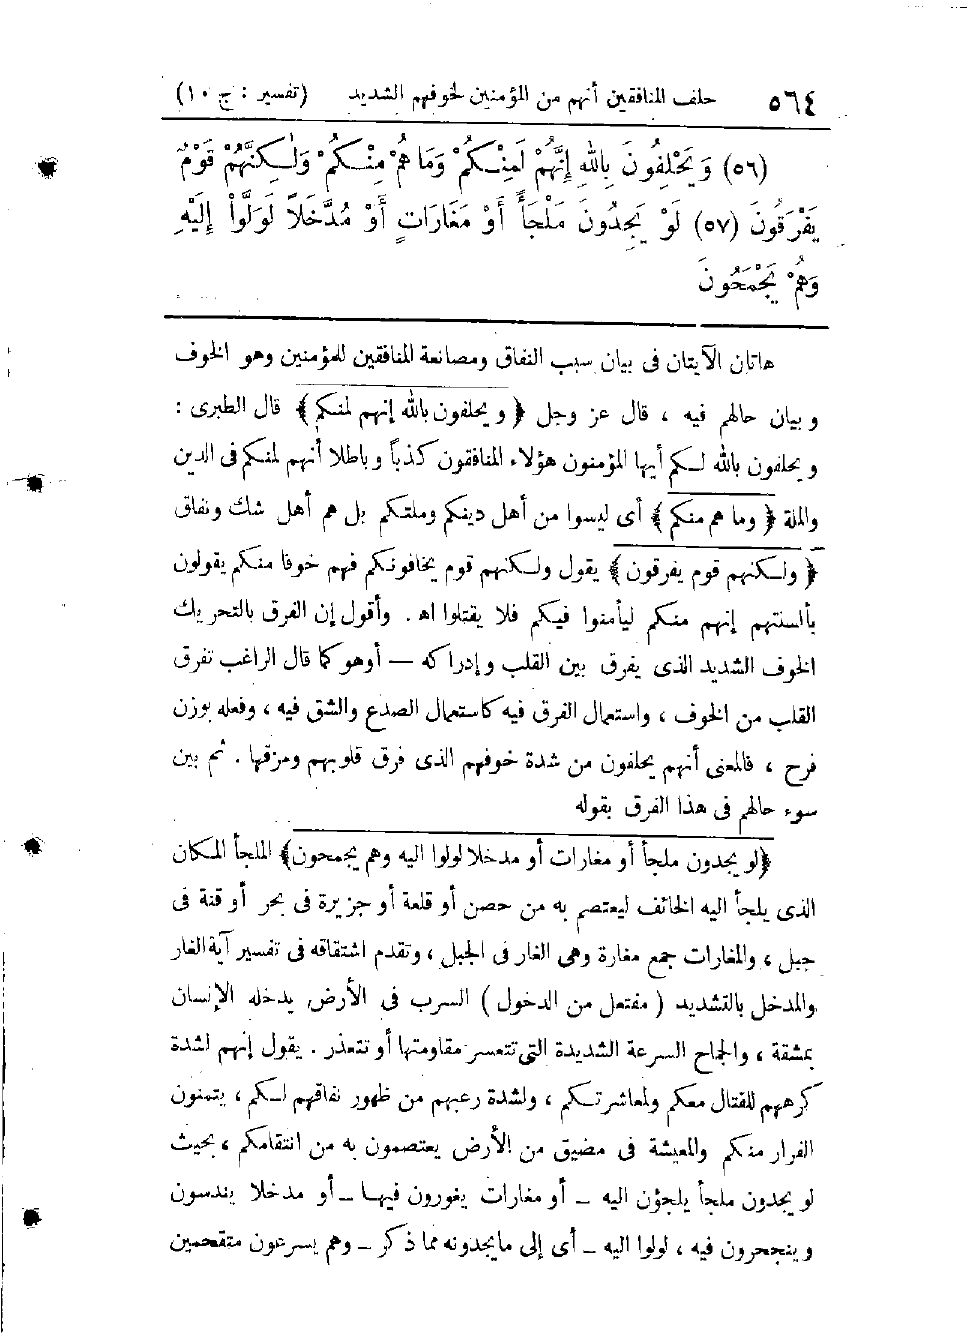 ٥٦٤ حلف المنافقين أنهم من المؤمنين لخوفهم الشديد (تفسير : ج ١٠)
(٥٦) وَيَحْلِفُونَ بِاللهِ إِنَّهُمْ لَمِنْكُمْ وَمَا هُمْ مِنْكُمْ وَلَٰكِنَّهُمْ قَوْمٌ
يَفْرَقُونَ (٥٧) لَوْ يَجِدُونَ مَلْجَأً أَوْ مَغَارَاتٍ أَوْ مُدَّخَلاً لَوَلَّوْا إِلَيْهِ
وَهُمْ يَجْمَحُونَ
هاتان الآيتان فى بيان سبب النفاق ومصانعة المنافقين للمؤمنين وهو الخوف
وبيان حالهم فيه ، قال عز وجل ﴿ ويحلفون بالله إنهم لمنكم ﴾ قال الطبرى :
ويحلفون بالله لكم أيها المؤمنون هؤلاء المنافقون كذباً وباطلا أنهم لمنكم فى الدين
والملة ﴿ وما هم منكم ﴾ أى ليسوا من أهل دينكم وملتكم بل هم أهل شك ونفاق
﴿ ولكنهم قوم يفرقون ﴾ يقول ولكنهم قوم يخافونكم فهم خوفا منكم يقولون
بألسنتهم إنهم منكم ليأمنوا فيكم فلا يقتلوا اهـ . وأقول إن الفرق بالتحريك
الخوف الشديد الذى يفرق بين القلب وإدراكه — أوهو كما قال الراغب تفرق
القلب من الخوف ، واستعمال الفرق فيه كاستعمال الصدع والشق فيه ، وفعله بوزن
فرح ، فالمعنى أنهم يحلفون من شدة خوفهم الذى فرق قلوبهم ومزقها . ثم بين
سوء حالهم فى هذا الفرق بقوله
﴿لو يجدون ملجأ أو مغارات أو مدخلا لولوا اليه وهم يجمحون﴾ الملجأ المكان
الذى يلجأ اليه الخائف ليعتصم به من حصن أو قلعة أو جزيرة فى بحر أو قنة فى
جبل ، والمغارات جمع مغارة وهى الغار فى الجبل ، وتقدم اشتقاقه فى تفسير آية الغار
والمدخل بالتشديد ( مفتعل من الدخول ) السرب فى الأرض يدخله الإنسان
بمشقة ، والجماح السرعة الشديدة التى تتعسر مقاومتها أو تتعذر . يقول إنهم لشدة
كرههم للقتال معكم ولمعاشرتكم ، ولشدة رعبهم من ظهور نفاقهم لكم ، يتمنون
الفرار منكم والمعيشة فى مضيق من الأرض يعتصمون به من انتقامكم ، بحيث
لو يجدون ملجأ يلجؤن اليه — أو مغارات يغورون فيها — أو مدخلا يندسون
وينجحرون فيه ، لولوا اليه — أى إلى مايجدونه مما ذكر — وهم يسرعون متقحمين